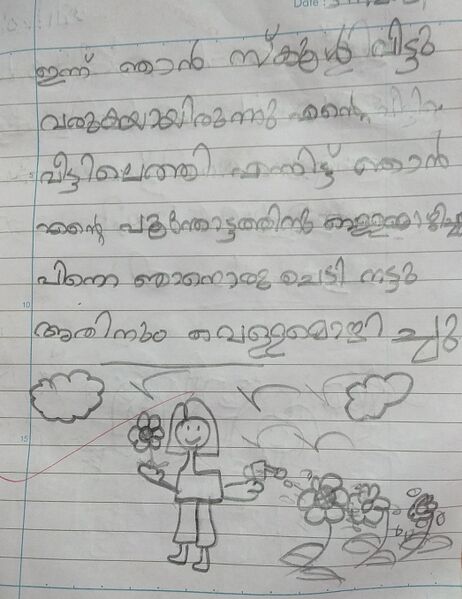 Date :
ഇന്ന് ഞാൻ സ്കൂൾ വിട്ടു
വരുകയായിരുന്നു എന്റെ
വീട്ടിലെത്തി എന്നിട്ട് ഞാൻ
എന്റെ പൂന്തോട്ടത്തിനു വെള്ളമൊഴിച്ചു
പിന്നെ ഞാനൊരു ചെടി നട്ടു
അതിനും വെള്ളമൊഴി ച്ചു
10
15